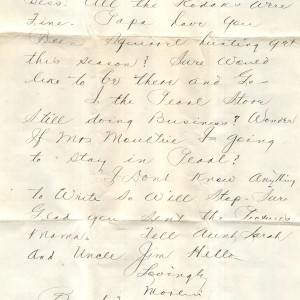 Bess. All the Kodaks Were
Fine. Papa have you
Been Squirrel hunting yet
this season? Sure Would
like to be there and Go—
Is the Pearl Store
Still doing Business? Wonder
If Mrs Moultrie Is going
to Stay in Pearl?
I Dont Know Anything
to Write So Will Stop. Sure
Glad you Sent the
Mama. Tell Aunt Sarah
And Uncle Jim Hello
Lovingly